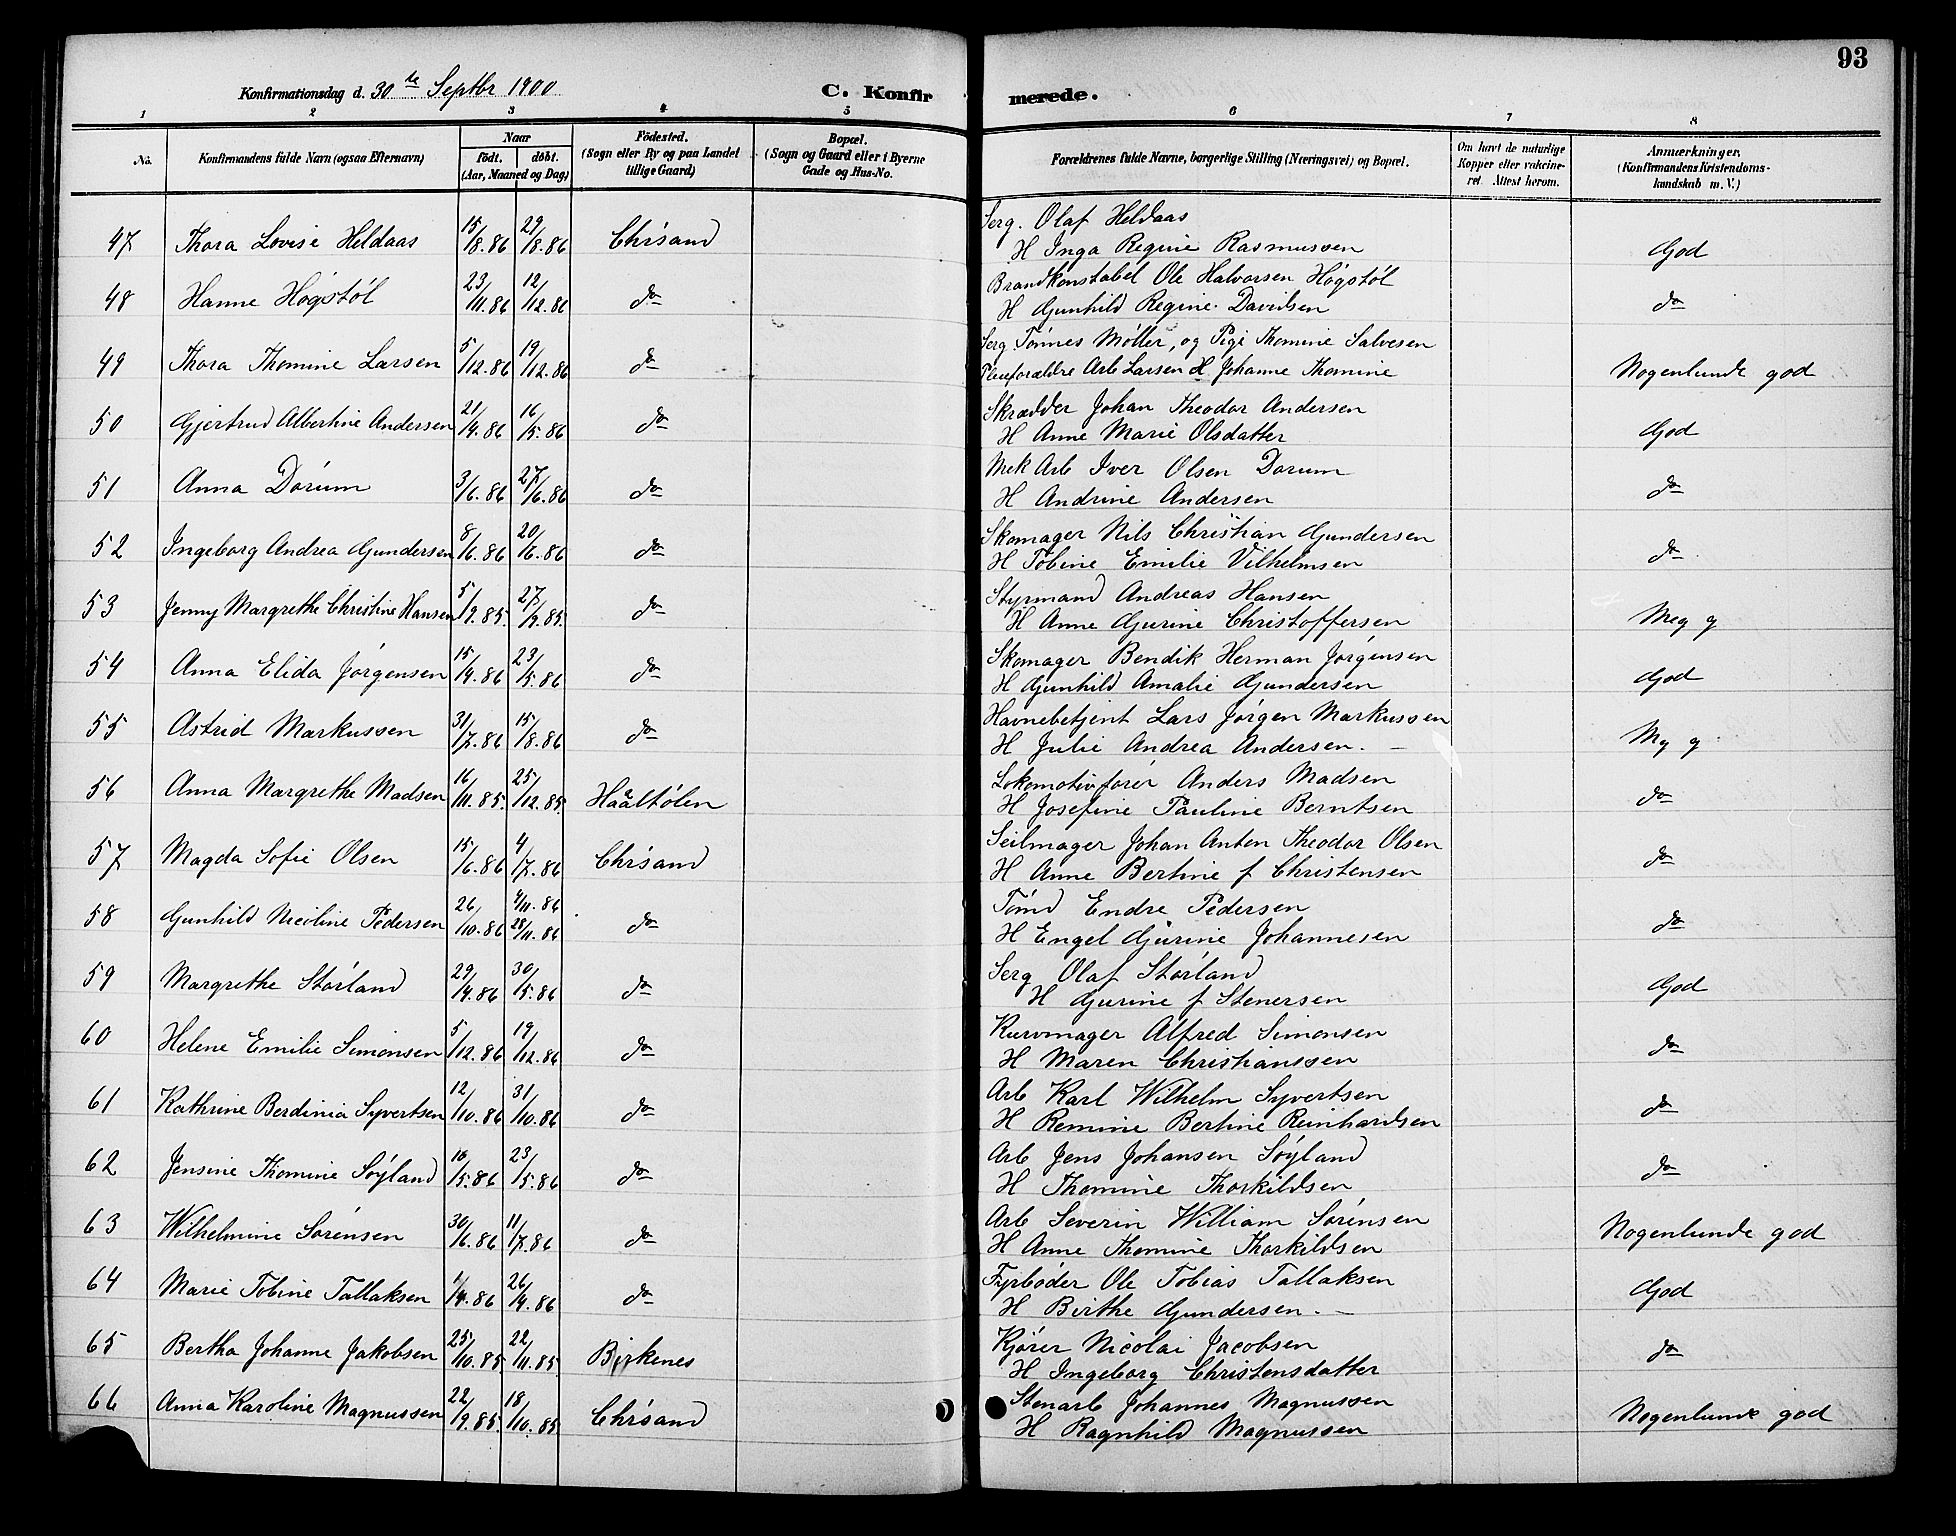 93
Konfirmationsdag d. 30te Septbr 1900 C. Konfirmerede.
1 2 3 4 5 6 7 8
No. Konfirmandens fulde Navn (ogsaa Efternavn) Naar födt. döbt. (Aar, Maaned og Dag) Födested. (Sogn eller By og paa Landet tillige Gaard) Bopæl. (Sogn og Gaard eller i Byerne Gade og Hus-No. Forældrenes fulde Navne, borgerlige Stilling (Næringsvei) og Bopæl. Om havt de naturlige Kopper eller vakcineret. Attest herom. Anmærkninger, (Konfirmandens Kristendomskundskab m. V.)
47 Thora Lovise Heldaas 15/8.86 29/8.86 Chrsand Serg. Olaf Heldaas
H Inga Regine Rasmussen God
48 Hanne Høgstøl 23/11.86 12/12.86 do Brandkonstabel Ole Halvorsen Høgstøl
H Gunhild Regine Davidsen do
49 Thora Thomine Larsen 5/12.86 19/12.86 do Serg. Tønnes Møller, og Pige Thomine Salvesen
Pleieforældre Arb Larsen H Johanne Thomine Nogenlunde god
50 Gjertrud Albertine Andersen 21/4.86 16/5.86 do Skrædder Johan Theodor Andersen
H Anne Marie Olsdatter God
51 Anna Dorum 3/6.86 27/6.86 do Mek Arb Iver Olsen Dorum
H Andrine Andersen do
52 Ingeborg Andrea Gundersen 8/6.86 20/6.86 do Skomager Nils Christian Gundersen
H Tobine Emilie Vilhelmsen do
53 Jenny Margrethe Christine Hansen 5/9.85. 27/9.85. do Styrmand Andreas Hansen
H Anne Gurine Christoffersen Meg g
54 Anna Elida Jørgensen 15/4.86 23/5.86 do Skomager Bendik Herman Jørgensen
H Gunhild Amalie Gundersen God
55 Astrid Markussen 31/7.86 15/8.86 do Havnebetjent Lars Jørgen Markussen
H Julie Andrea Andersen. Mg g
56 Anna Margrethe Madsen 16/11.85. 25/12.85. Haaltølen Lokomotivfører Anders Madsen
H Josefine Pauline Berntsen do
57 Magda Sofie Olsen 15/6.86 4/7.86 Chrsand Seilmager Johan Anton Theodor Olsen
H Anne Bertine f Christensen do
58 Gunhild Nicoline Pedersen 26/10.86 4/11.86 28/11.86 do Tømd Endre Pedersen
H Engel Gurine Johannesen do
59 Margrethe Størland 29/4.86 30/5.86 do Serg Olaf Størland
H Gurine f Stenersen God
60 Helene Emilie Simonsen 5/12.86 19/12.86 do Kurvmager Alfred Simonsen
H Maren Christianssen do
61 Kathrine Berdinia Syvertsen 12/10.86 31/10.86 do Arb Karl Wilhelm Syvertsen
H Remine Bertine Reinhardsen do
62 Jensine Thomine Søyland 16/5.86 23/5.86 do Arb Jens Johansen Søyland
H Thomine Thorkildsen do
63 Wilhelmine Sørensen 30/6.86 11/7.86 do Arb Severin William Sørensen
H Anne Thomine Thorkildsen Nogenlunde god
64 Marie Tobine Tallaksen 1/4.86 26/4.86 do Fyrbøder Ole Tobias Tallaksen
H Birthe Gundersen. God
65 Bertha Johanne Jakobsen 25/10.85 22/11.85. Birkenes Kjører Nicolai Jacobsen
H Ingeborg Christensdatter do
66 Anna Karoline Magnussen 22/9.85. 18/10.85 Chrsand Stenarb Johannes Magnussen
H Ragnhild Magnussen Nogenlunde god